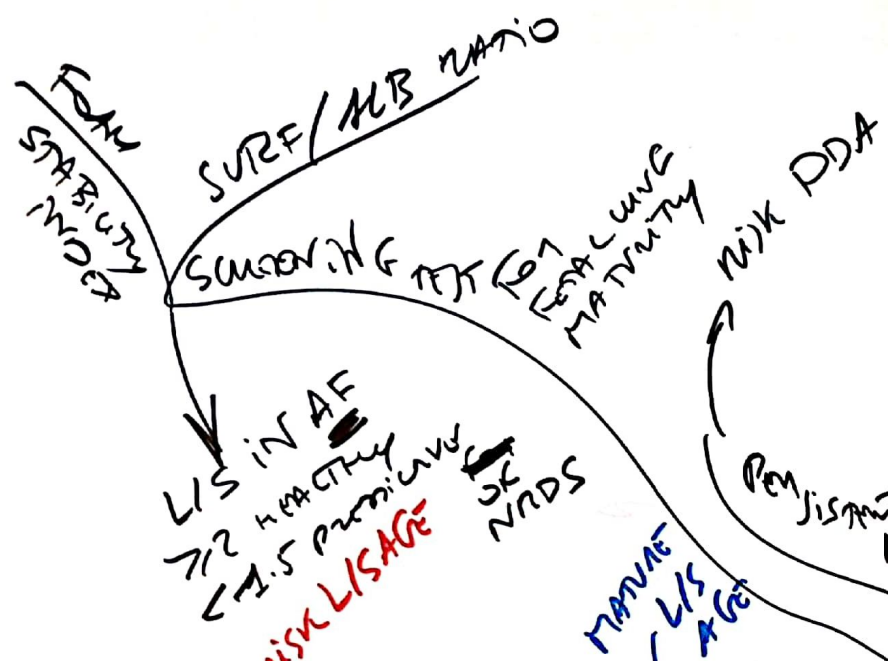 FOAM
STABILITY
INDEX
SURF/ALB RATIO
SCREENING TEST FOR
FETAL LUNG
MATURITY
RISK PDA
L/S IN AF
≥2 HEALTHY
<1.5 PREDICTIVE OF
NRDS
RISK L/S AGE
MATURE
L/S
AGE